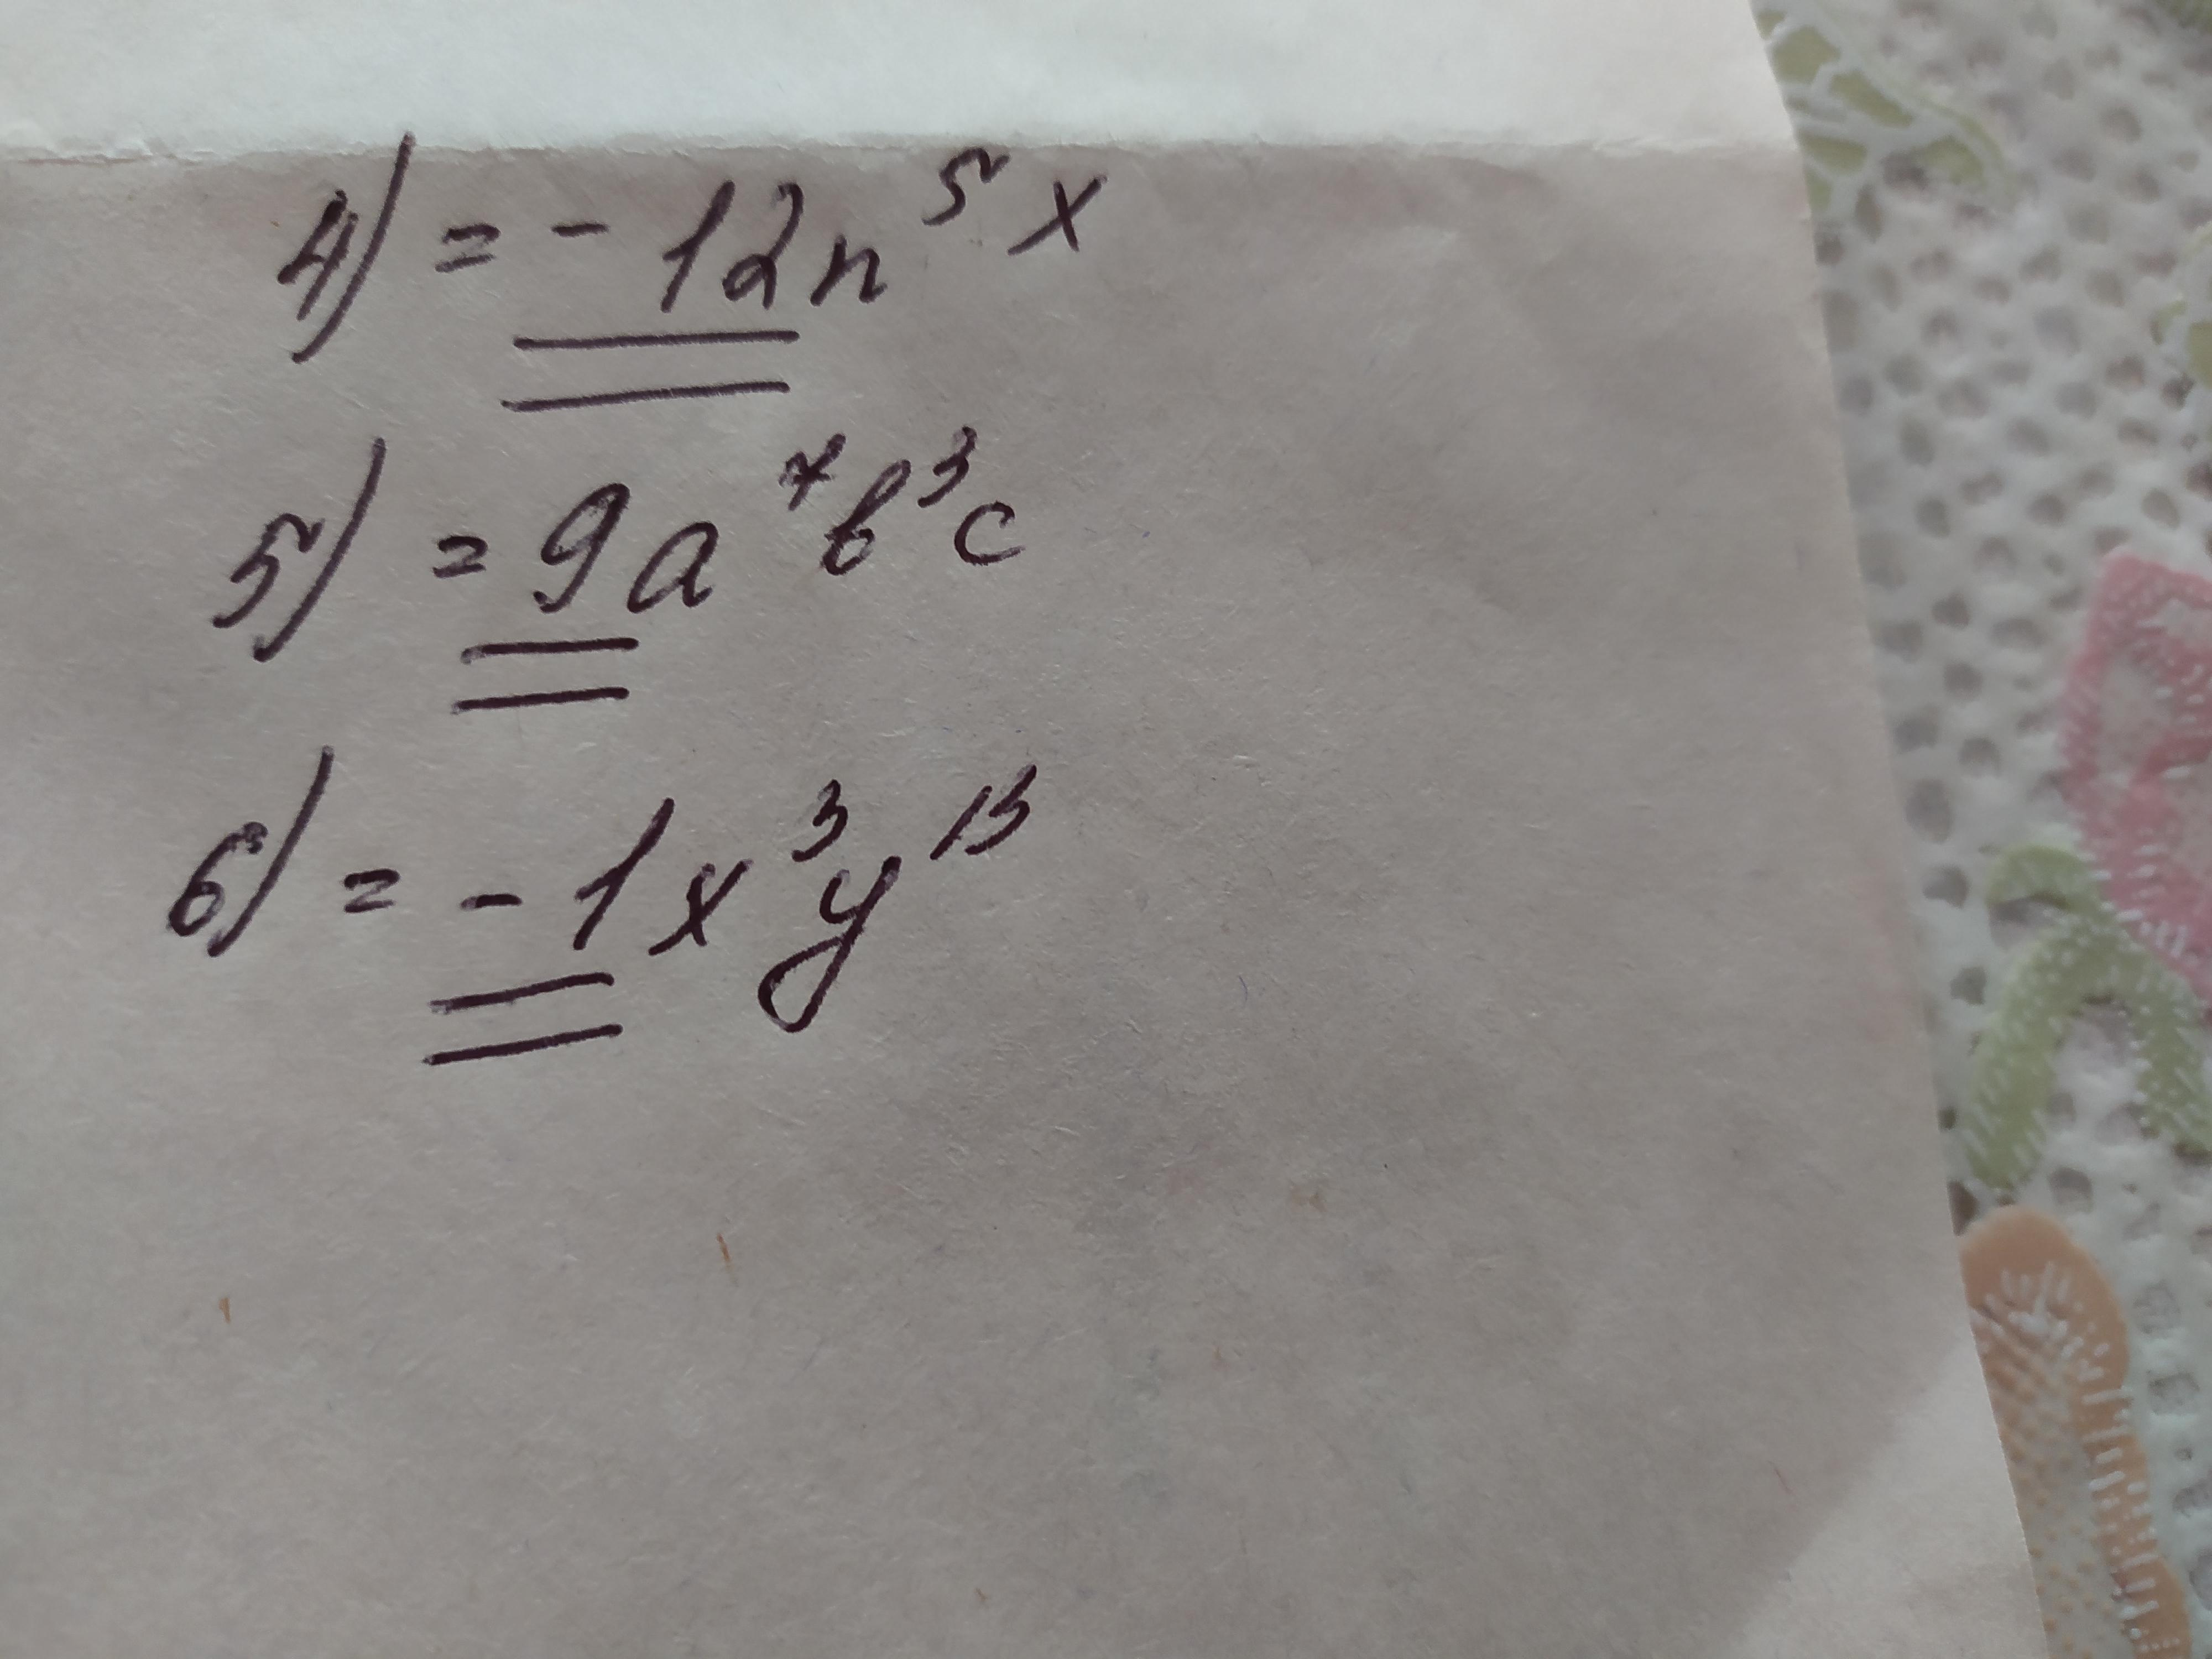 4) = - 12n⁵x
5) = 9a⁷b³c
6) = - 1x³y¹³